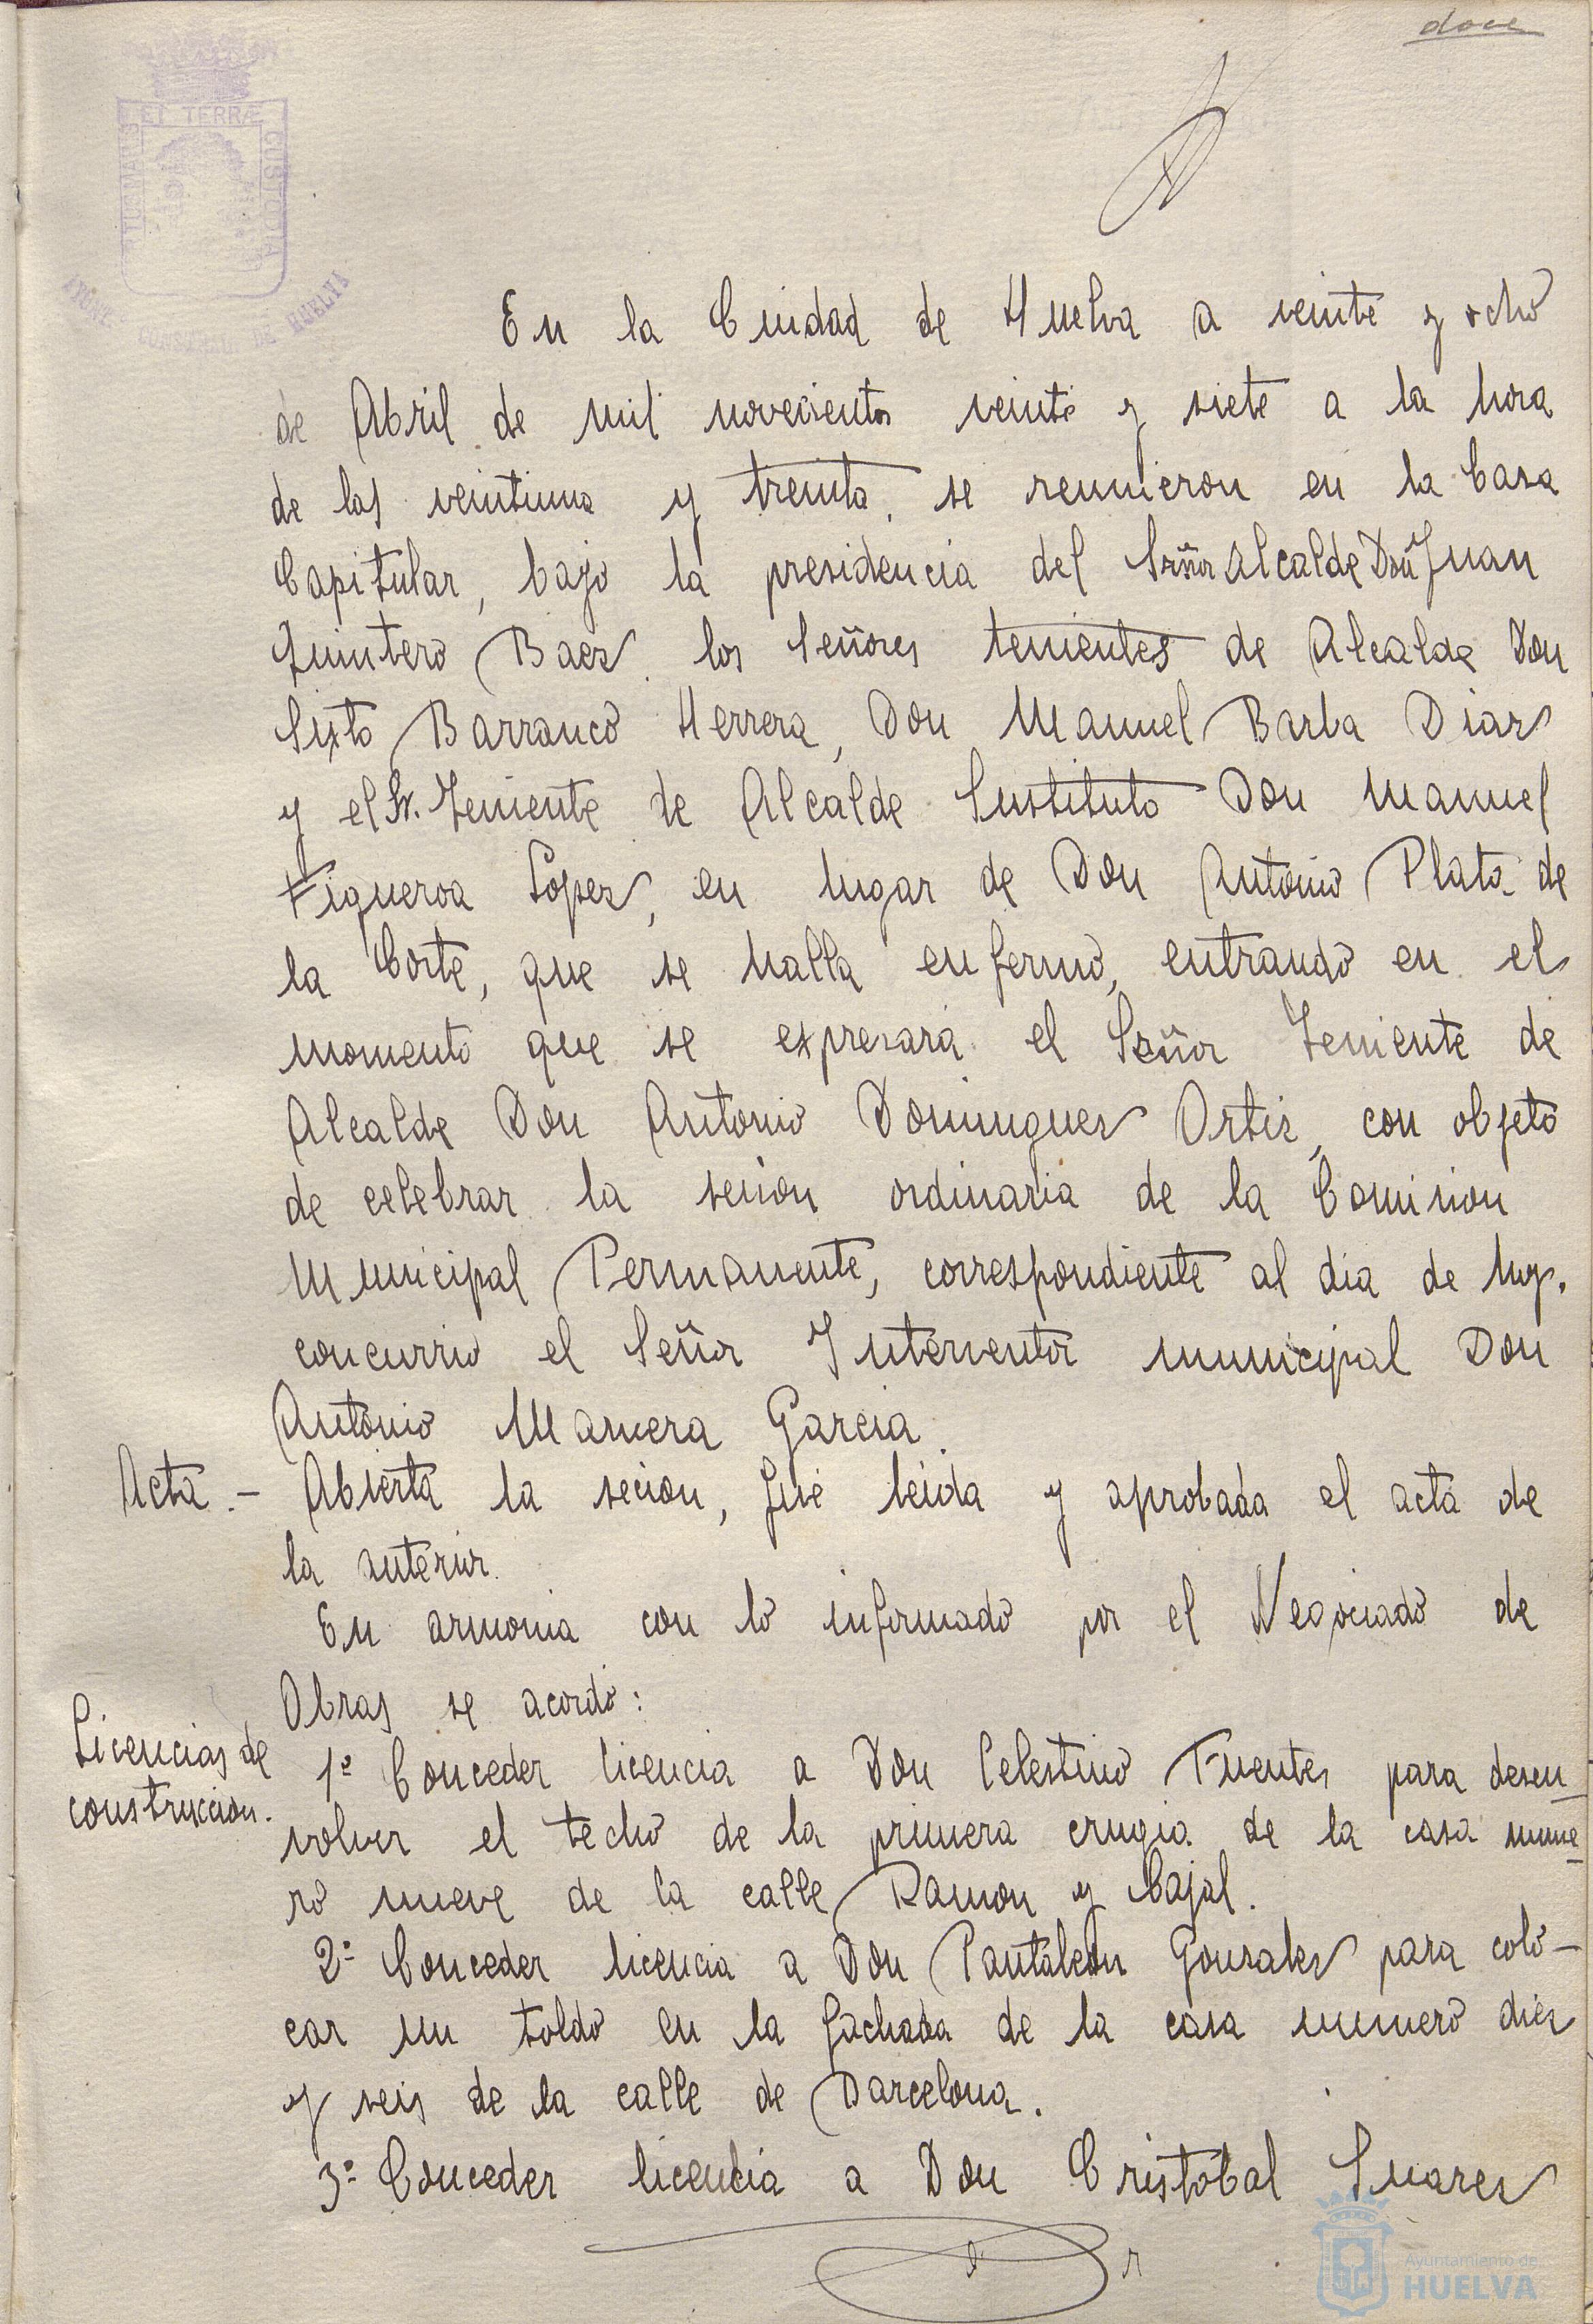 doce
ET TERRÆ
CUSTODIA
DE HUELVA
En la Ciudad de Huelva a veinte y ocho
de Abril de mil novecientos veinte y siete a la hora
de las veintiuna y treinta, se reunieron en la Casa
Capitular, bajo la presidencia del Señor Alcalde Don Juan
Quintero Baez los Señores tenientes de Alcalde Don
Sixto Barranco Herrera, Don Manuel Barba Diaz
y el Sr. Teniente de Alcalde Sustituto Don Manuel
Figueroa Lopez, en lugar de Don Antonio Plata de
la Corte, que se halla enfermo, entrando en el
momento que se expresará el Señor Teniente de
Alcalde Don Antonio Dominguez Ortiz, con objeto
de celebrar la sesion ordinaria de la Comision
Municipal Permanente, correspondiente al dia de hoy.
concurrio el Señor Interventor municipal Don
Antonio Garcia.
Acta.- Abierta la secion, fué leida y aprobada el acta de
la anterior.
En armonia con lo informado por el Negociado de
Obras se acordó:
Licencias de
construccion.
1º Conceder licencia a Don Celestino Fuentes para desen-
volver el techo de la primera crugia de la casa nume-
ro nueve de la calle Ramon y Cajal.
2º Conceder licencia a Don Pantaleon Gonzalez para colo-
car un toldo en la fachada de la casa numero diez
y seis de la calle de Barcelona.
3º Conceder licencia a Don Cristobal Suarez
Ayuntamiento de
HUELVA